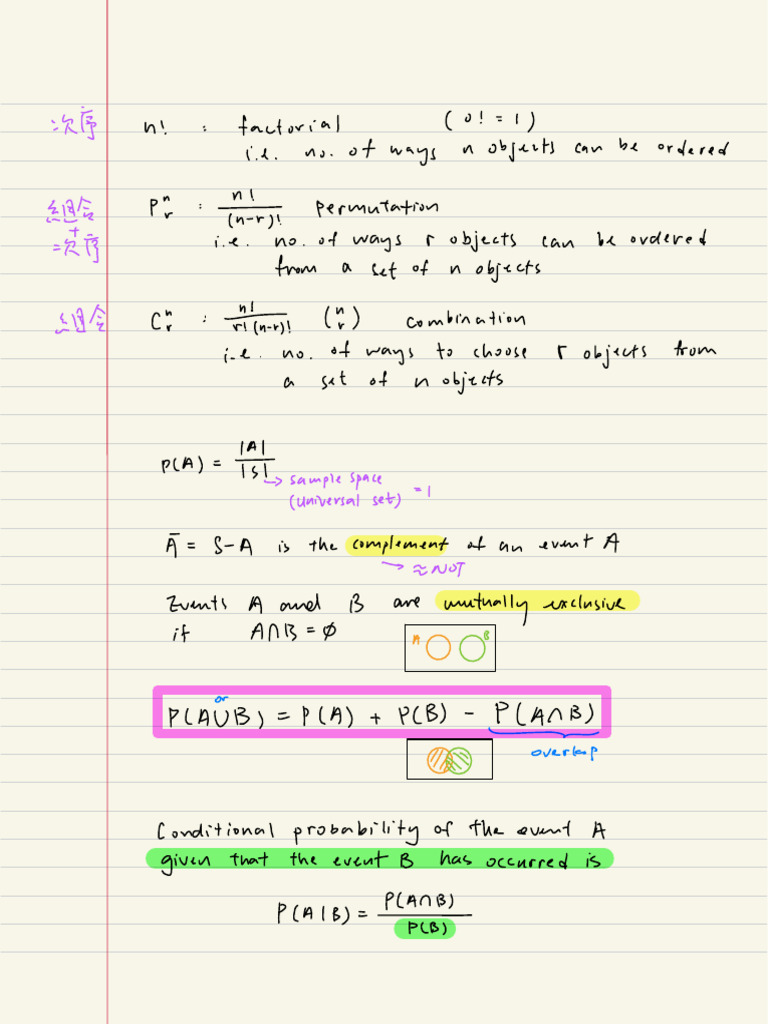 次序 n! : factorial (0! = 1)
i.e. no. of ways n objects can be ordered
組合 + 次序 Pⁿᵣ : n!/(n-r)! Permutation
i.e. no. of ways r objects can be ordered
from a set of n objects
組合 Cⁿᵣ : n!/r!(n-r)! (n r) combination
i.e. no. of ways to choose r objects from
a set of n objects
P(A) = |A|/|S|
→ sample space
(universal set) = 1
Ā = S-A is the complement of an event A
→ ≈ NOT
Events A and B are mutually exclusive
if A∩B = ∅
A B
or
P(A∪B) = P(A) + P(B) - P(A∩B)
overlap
Conditional probability of the event A
given that the event B has occurred is
P(A|B) = P(A∩B)/P(B)